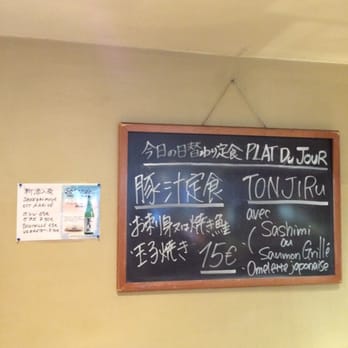 今日の日替わり定食 PLAT DU JOUR
豚汁定食
お刺身又は焼き鮭
玉子焼き 15€
TONJIRU
avec
( Sashimi
ou
Saumon Grillé
・Omelette japonaise
新酒入荷